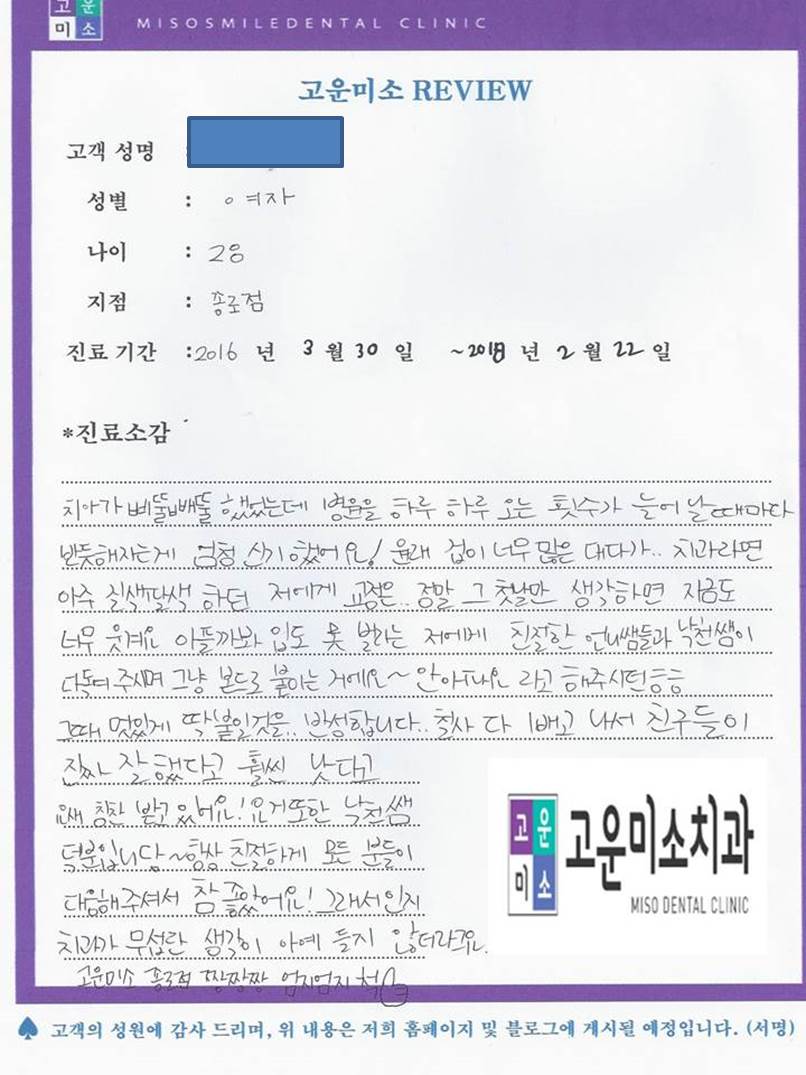 고운
미소
MISOSMILEDENTAL CLINIC
고운미소 REVIEW
고객 성명 :
성별 : 여자
나이 : 28
지점 : 종로점
진료 기간 : 2016 년 3 월 30 일 ~2018 년 2 월 22 일
*진료소감
치아가 삐뚤빼뚤 했었는데 병원을 하루 하루 오는 횟수가 늘어 날때마다
반듯해지는게 엄청 신기했어요! 원래 겁이 너무 많은 대다가.. 치과라면
아주 질색팔색 하던 저에게 교정은.. 정말 그 첫날만 생각하면 지금도
너무 웃겨요 아플까봐 입도 못 벌리는 저에게 친절한 언니쌤들과 낙천쌤이
다독여 주시며 그냥 본드로 붙이는 거에요~ 안아파요 라고 해주시던
그때 멋있게 딱 붙일것을.. 반성합니다.. 철사 다 빼고 나서 친구들이
진짜 잘 했다고 훨씬 낫다고
요새 칭찬 받고 있어요! 요거또한 낙천쌤
덕분입니다~ 항상 친절하게 모든 분들이
대응해주셔서 참 좋았어요! 그래서인지
치과가 무섭단 생각이 아예 들지 않더라구요.
고운미소 종로점 짱짱짱 엄지엄지 척
고운
미소
고운미소치과
MISO DENTAL CLINIC
♠ 고객의 성원에 감사 드리며, 위 내용은 저희 홈페이지 및 블로그에 게시될 예정입니다. (서명)